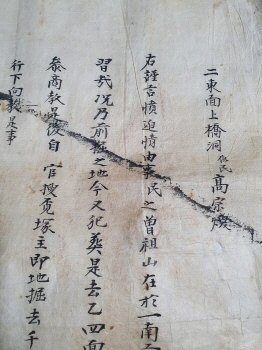 二東面上橋洞 化民 高宗煥
右謹言憤迫情由事民之曾祖山在於一南面
習哉况乃前 之地今又犯葬是去乙四面
叅商教是後自 官搜覓塚主即地掘去千
行下向敎是事